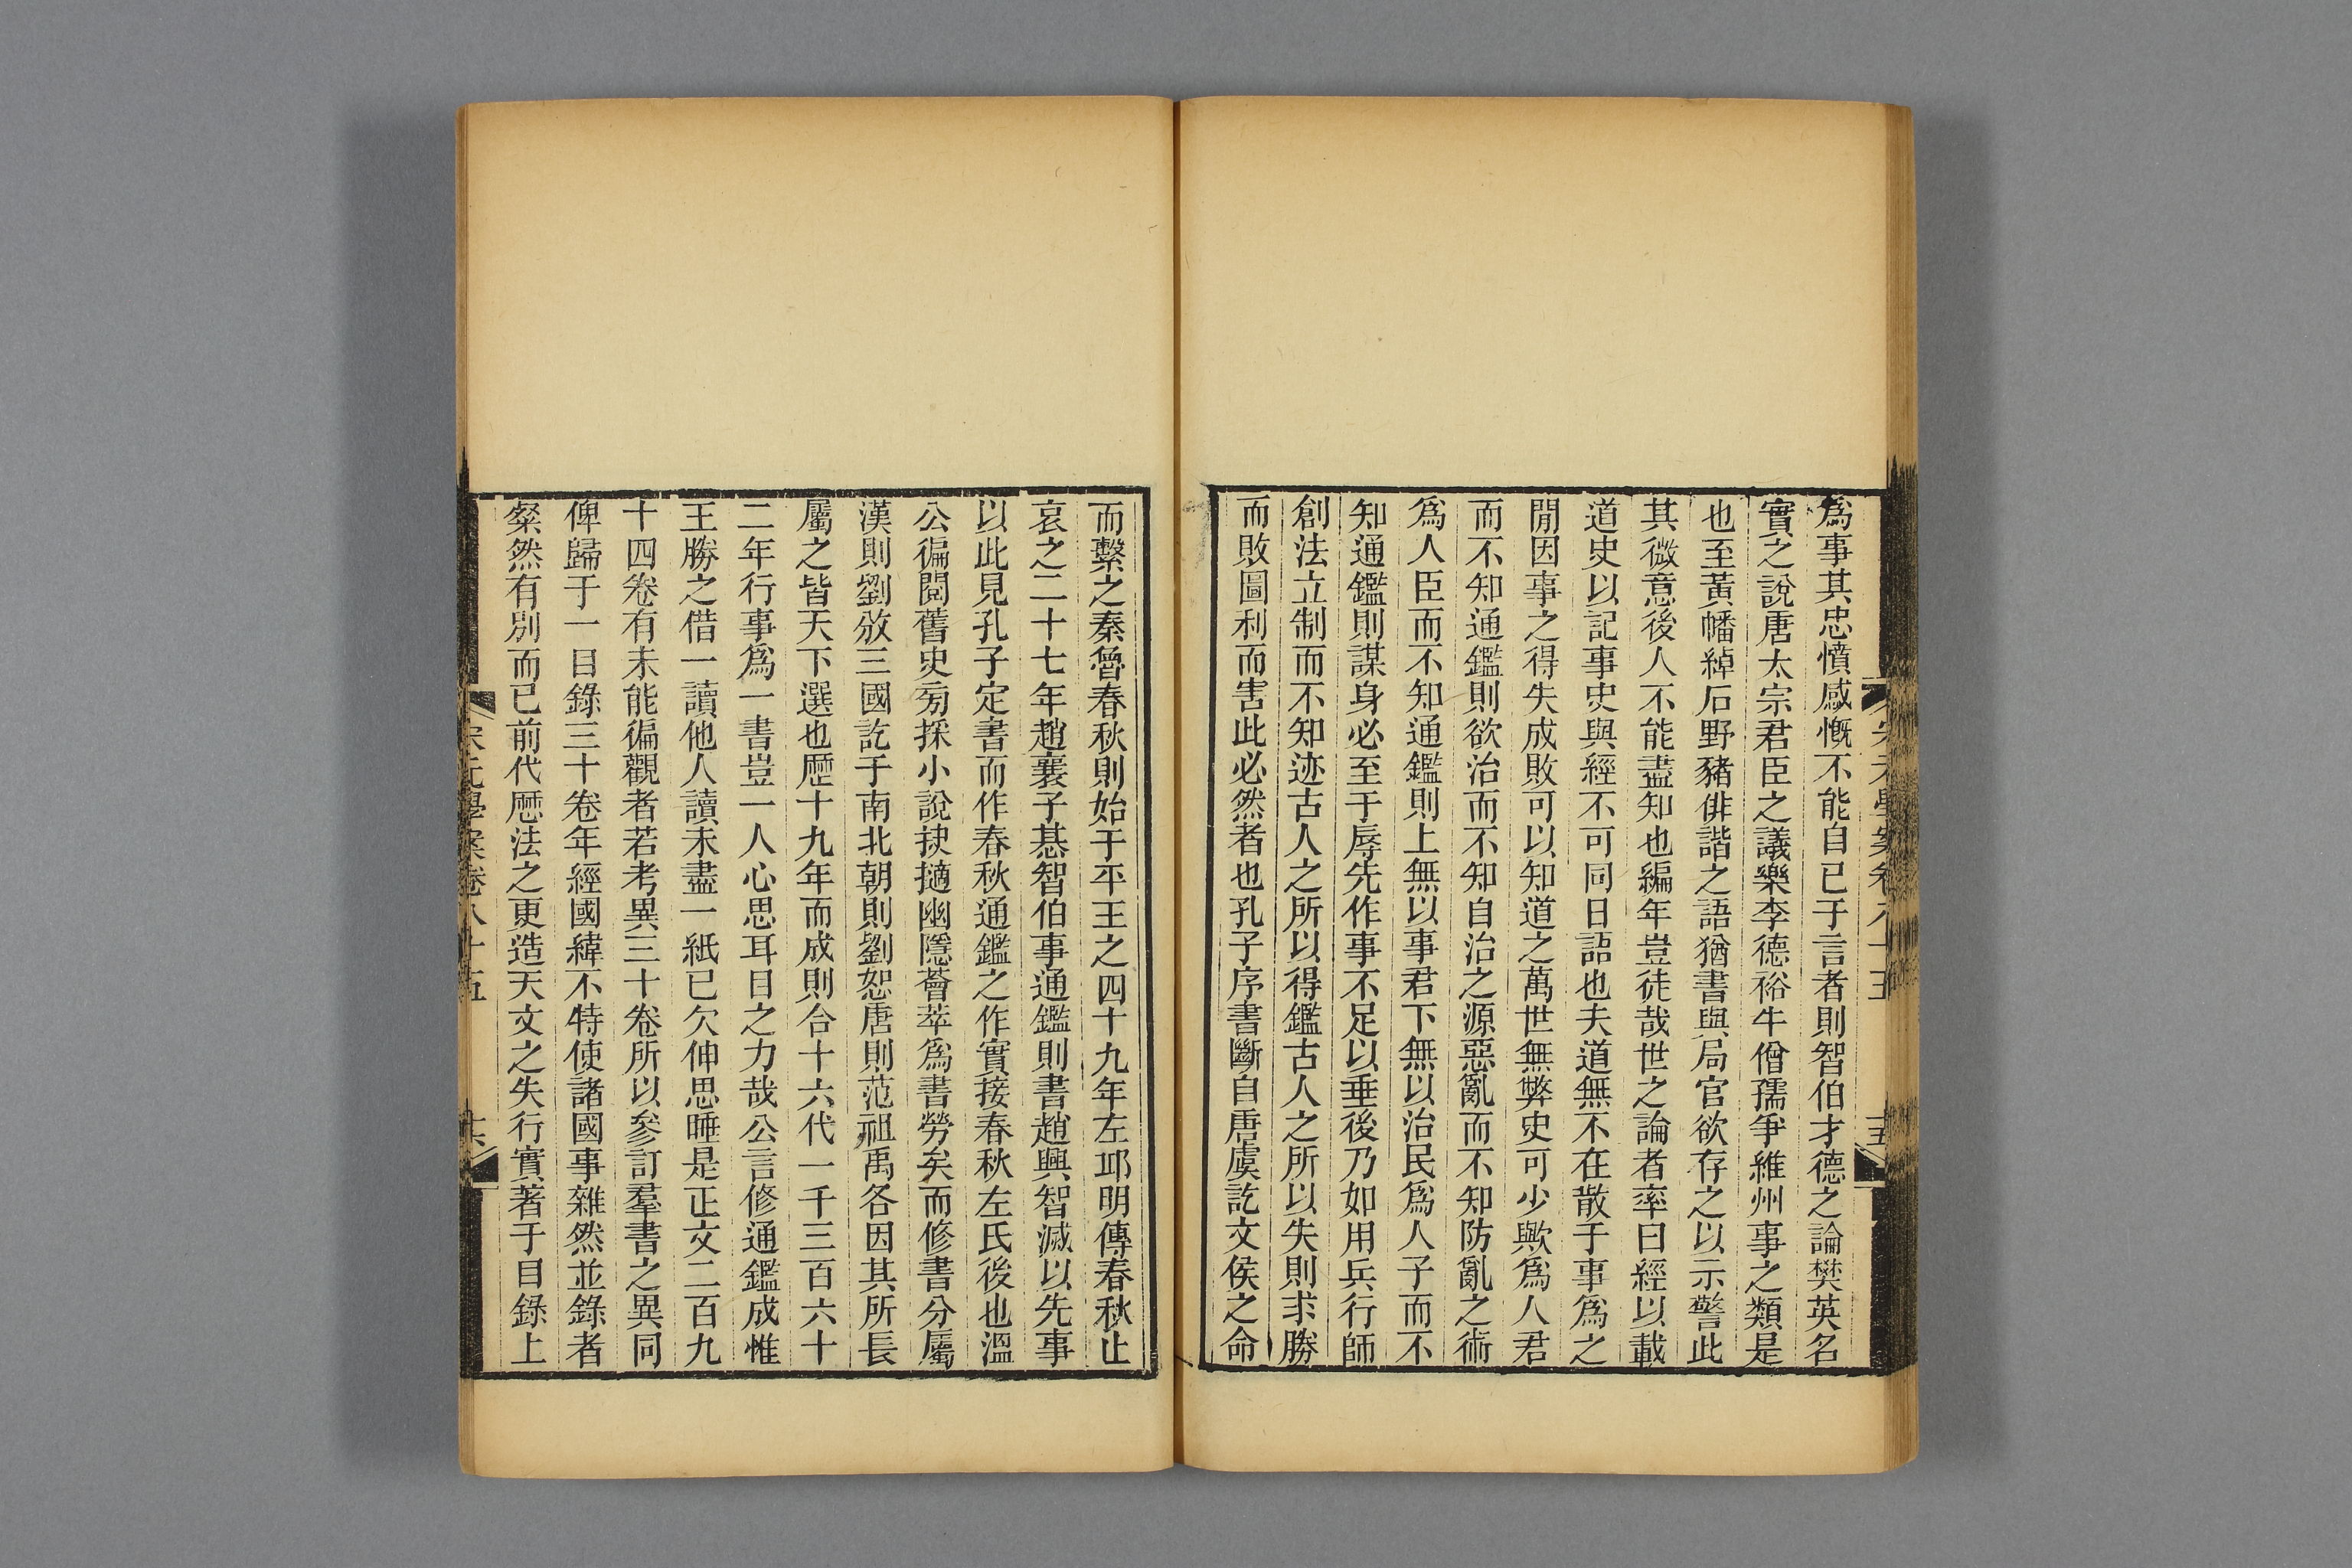 爲事其忠憤感慨不能自已于言者則智伯才德之論樊英名
實之說唐太宗君臣之議樂李德裕牛僧孺爭維州事之類是
也至黃幡綽石野豬俳諧之語猶書與局官欲存之以示警此
其微意後人不能盡知也編年豈徒哉世之論者率曰經以載
道史以記事史與經不可同日語也夫道無不在散于事爲之
閒因事之得失成敗可以知道之萬世無弊史可少歟爲人君
而不知通鑑則欲治而不知自治之源惡亂而不知防亂之術
爲人臣而不知通鑑則上無以事君下無以治民爲人子而不
知通鑑則謀身必至于辱先作事不足以垂後乃如用兵行師
創法立制而不知迹古人之所以得鑑古人之所以失則求勝
而敗圖利而害此必然者也孔子序書斷自唐虞訖文侯之命
而繫之秦魯春秋則始于平王之四十九年左邱明傳春秋止
哀之二十七年趙襄子惎智伯事通鑑則書趙興智滅以先事
以此見孔子定書而作春秋通鑑之作實接春秋左氏後也溫
公徧閱舊史旁採小說抉擿幽隱薈萃爲書勞矣而修書分屬
漢則劉攽三國訖于南北朝則劉恕唐則范祖禹各因其所長
屬之皆天下選也歷十九年而成則合十六代一千三百六十
二年行事爲一書豈一人心思耳目之力哉公言修通鑑成惟
王勝之借一讀他人讀未盡一紙已欠伸思睡是正文二百九
十四卷有未能徧觀者若考異三十卷所以參訂羣書之異同
俾歸于一目錄三十卷年經國緯不特使諸國事雜然並錄者
粲然有別而已前代歷法之更造天文之失行實著于目錄上
宋元學案卷八十五
十六